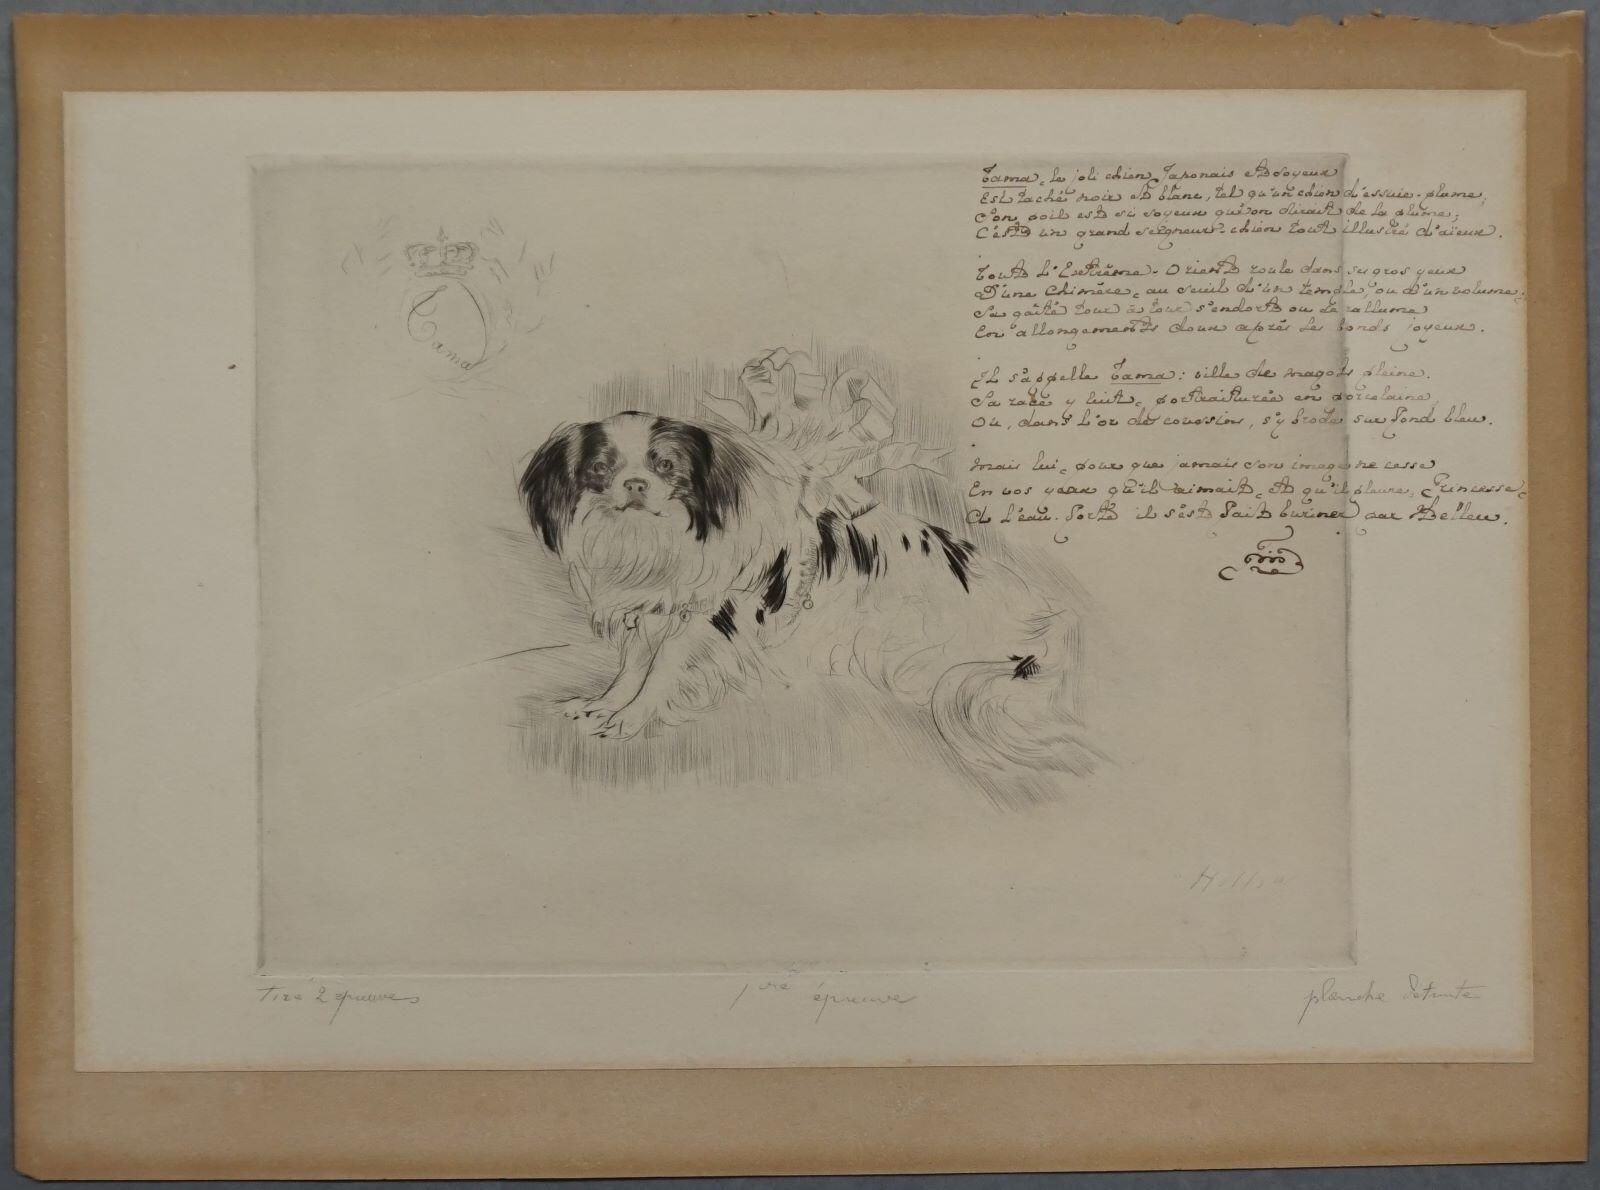 Tama
Tama, le joli chien Japonais et soyeux
Est taché noir et blanc, tel qu'un chien d'essuie-plume;
Son poil est si soyeux qu'on dirait de la plume;
C'est un grand seigneur-chien tout illustré d'aïeux.
Tout L'Extrême-Orient roule dans ses gros yeux
D'une Chimère, au seuil d'un temple, ou d'un volume;
Sa gaîté tour à tour s'endort ou se rallume
En allongements doux après les bonds joyeux.
Il s'appelle Tama: ville de magots pleine.
Sa race y luit, portraiturée en porcelaine,
Ou, dans l'or de coussins, s'y brode sur fond bleu.
Mais lui, pour que jamais son image ne cesse
En vos yeux qu'il aimait, et qu'il pleure, Princesse,
de l'eau-forte il s'est fait buriner par Helleu.
Helleu
Tiré 2 épreuves
1ère épreuve
planche détruite